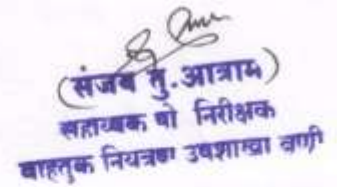 (संजय तु. आत्राम)
सहाय्यक पो निरीक्षक
वाहतुक नियंत्रण उपशाखा वणी